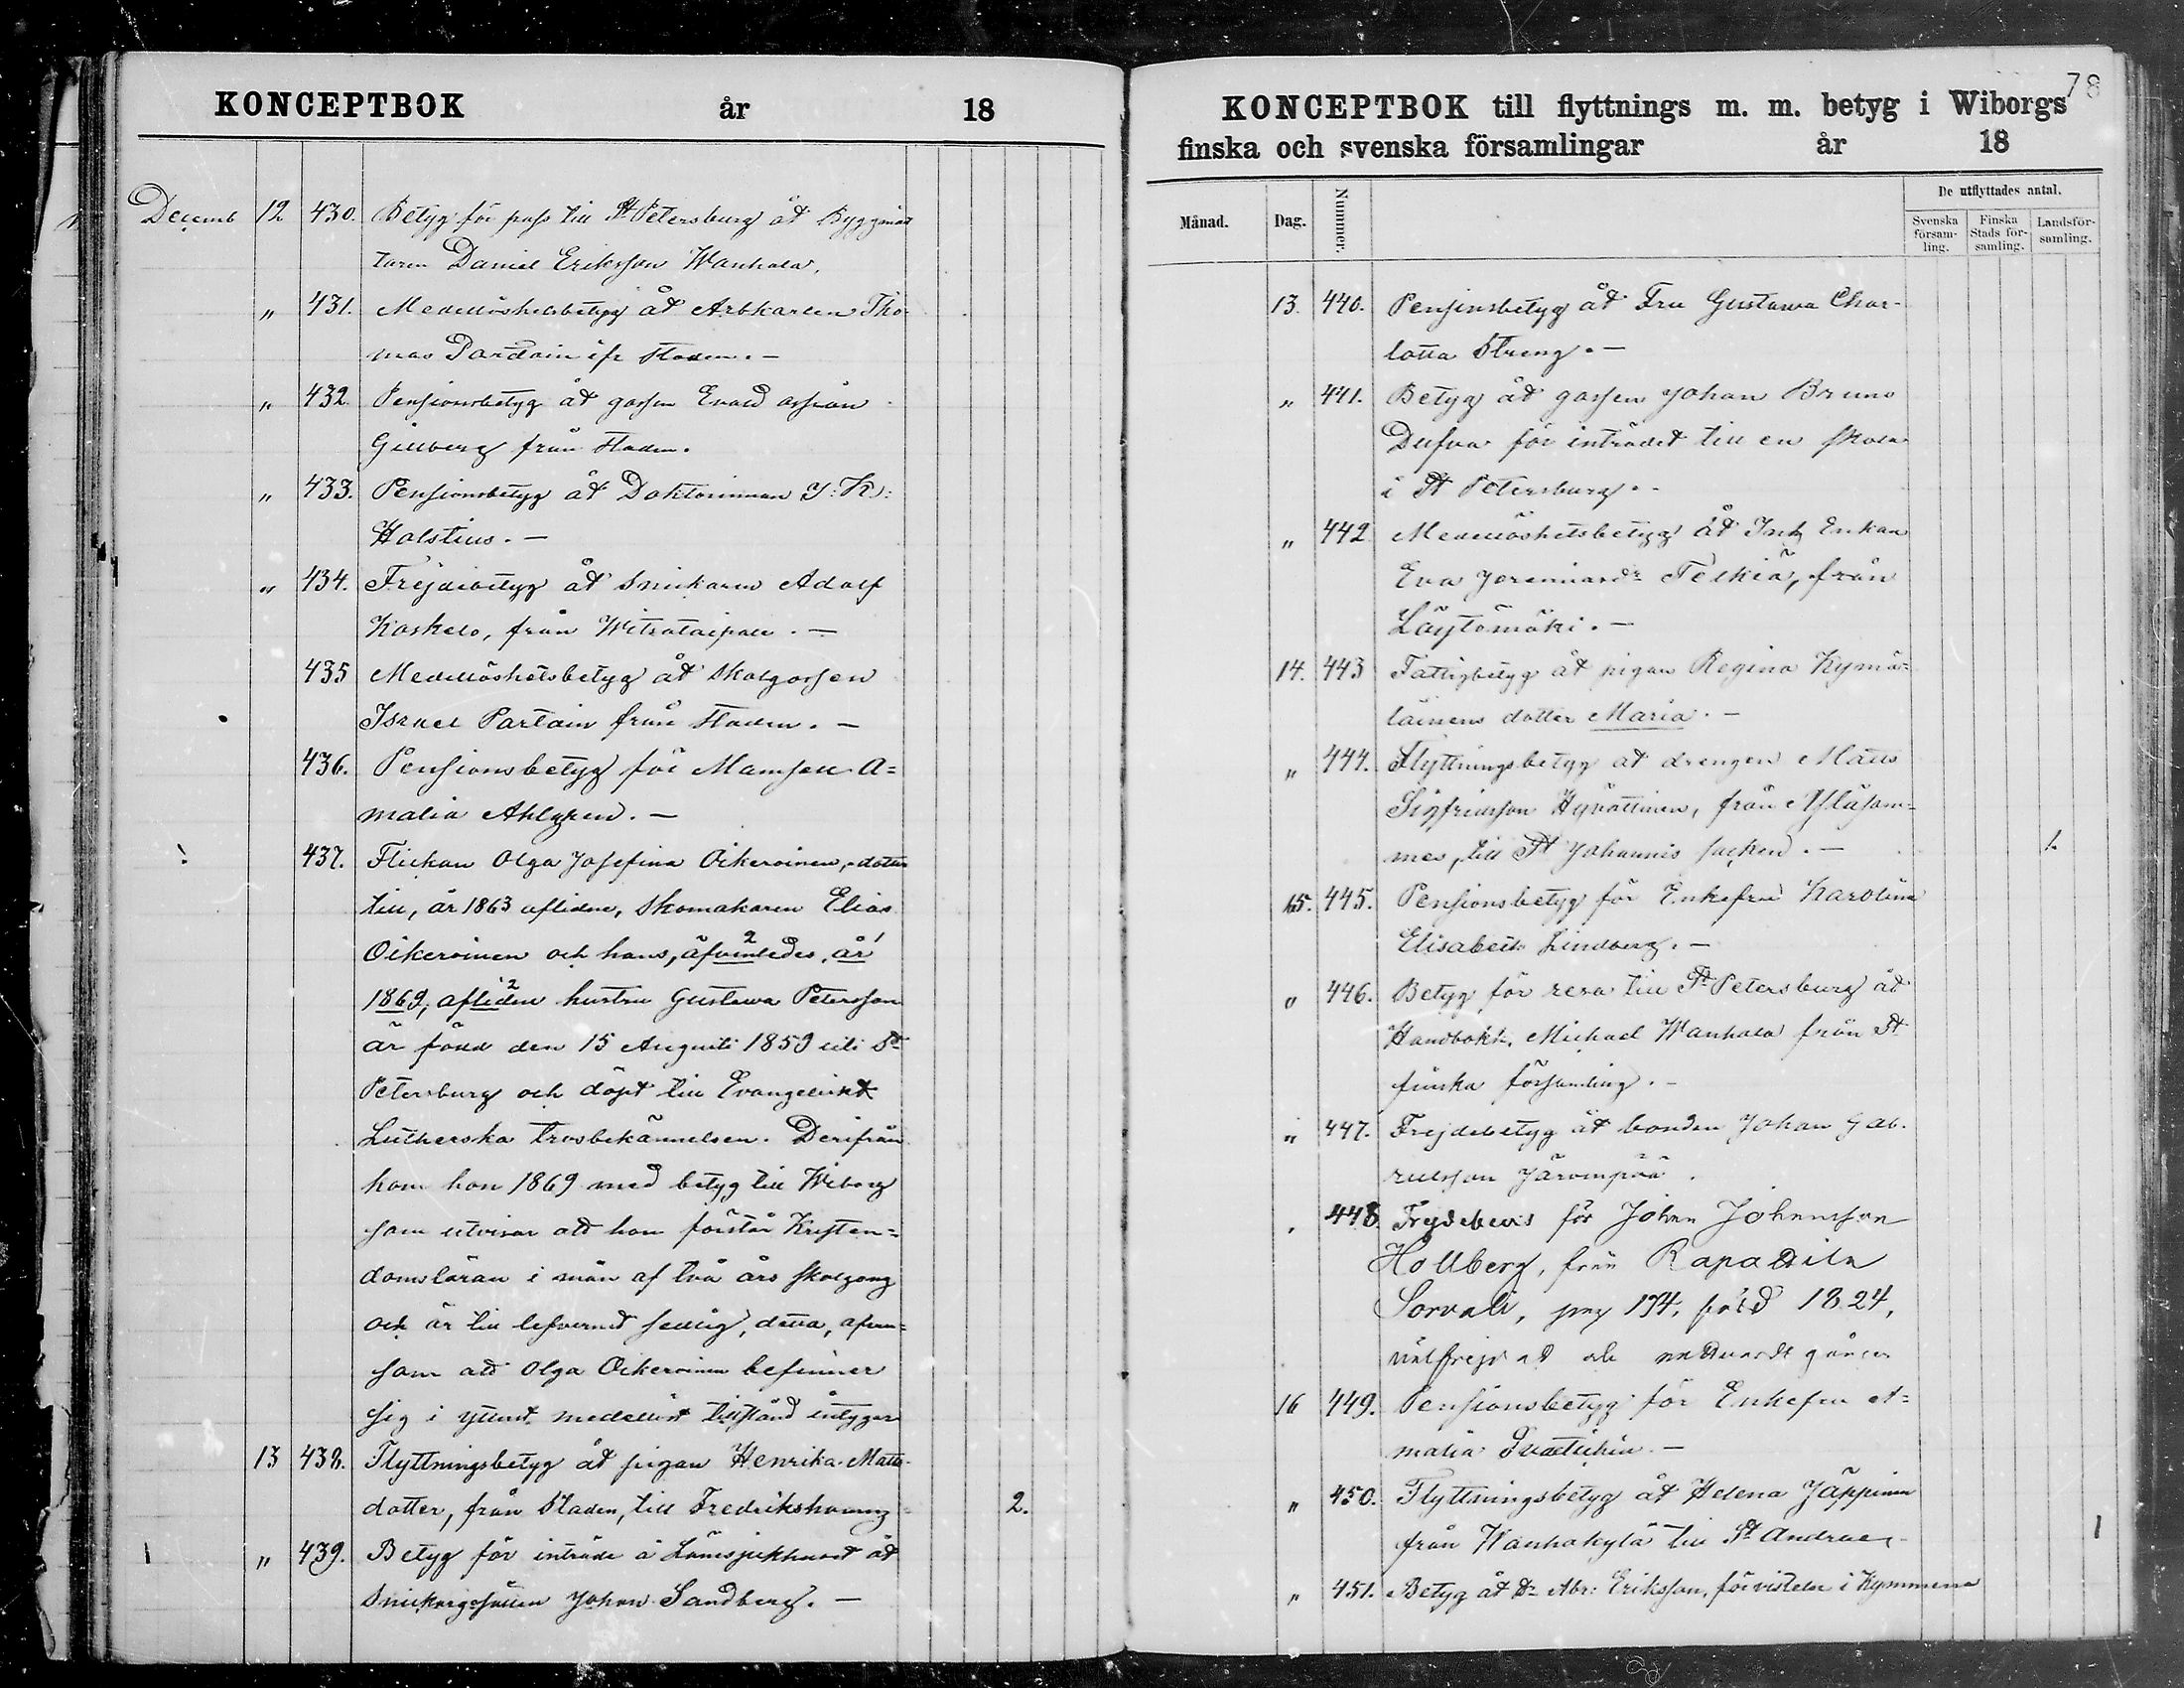 KONCEPTBOK år 18
Decemb 12 430. Betyg för pass till St Petersburg åt Byggmäs
taren Daniel Eriksson Wanhala.
" 431. Medellöshetsbetyg åt Arbkarlen Tho-
mas Pardain ifr staden. —
" 432. Pensionsbetyg åt gossen Evald
Gillberg från staden.
" 433. Pensionsbetyg åt Doktorinnan J: K:
Holstius. —
" 434. Frejdebetyg åt Snickaren Adolf
Koskelo, från Witsataipale. —
435 Medellöshetsbetyg åt Skolgossen
Israel Partain från staden. —
436. Pensionsbetyg för Mamsell A=
malia Ahlgren. —
! 437. Flickan Olga Josefina Oikeroinen, dotter
till, år 1863 aflidne, Skomakaren Elias
Oikeroinen och hans, äfvenledes, år
1869, afliden hustru Gustava Petersson
är född den 15 Augusti 1859 uti St
Petersburg och döpt till Evangeliskt
Lutherska trosbekännelsen. Derifrån
kom hon 1869 med betyg till Wiborg
som utvisar att hon förstår Kristen=
domsläran i mån af två års skolgång
och är till lefvernet sedlig, detta, äfven=
som att Olga Oikeroinen befinner
sig i ytterst medellöst tillstånd intygar
13 438. Flyttningsbetyg åt pigan Henrika Matts-
dotter, från Staden, till Fredrikshamn 2.
1 " 439. Betyg för inträde å Länssjukhuset åt
Snickargesällen Johan Sandberg. —
78
KONCEPTBOK till flyttnings m. m. betyg i Wiborgs
finska och svenska församlingar år 18
Månad. Dag. Nummer. De utflyttades antal.
Svenska församling. Finska Stads församling. Landsförsamling.
13. 440. Pensionsbetyg åt Fru Gustava Char-
lotta Streng. —
" 441. Betyg åt gossen Johan Bruno
Dufva för inträdet till en skola
i St Petersburg. -
" 442 Medellöshetsbetyg åt Inh Enkan
Eva Jeremiasdr Telkiä, från
Läytömäki. —
14. 443 Fattigbetyg åt pigan Regina Kymä=
läinens dotter Maria. —
" 444. Flyttningsbetyg åt drengen Matts
Sigfridsson Hyvättinen, från Yläsom=
mee, till St Johannis socken. — 1.
15. 445. Pensionsbetyg för Enkefru Karolina
Elisabeth Lindberg. —
" 446. Betyg för resa till St Petersburg åt
Handbokh. Michael Wanhala från St
finska församling. -
" 447. Frejdebetyg åt bonden Johan Gab-
rielsson Järvenpää.
448. Frejdebevis för Johan Johansson
Hollberg, från
Sorvali, pag 174, född 1824,
välfrejdad och nattvardsgången
16 449. Pensionsbetyg för Enkefru A=
malia —
" 450. Flyttningsbetyg åt Helena Jäppinen
från Wanhakylä till St Andraes 1
" 451. Betyg åt Dr Abr: Eriksson, för vistelse i Kymmene